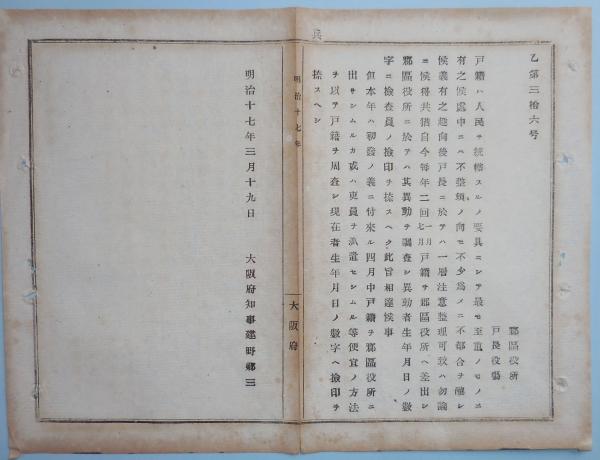 乙第三拾六号
郡區役所
戸長役塲
戸籍ハ人民ヲ統轄スルノ要具ニシテ最モ至重ノモノニ
有之候處中ニハ不整頓ノ向モ不少爲メニ不都合ヲ釀シ
候義有之趣向後戸長ニ於テハ一層注意整理可致ハ勿論
ニ候得共猶自今毎年二回一月七月戸籍ヲ郡區役所ヘ差出シ
郡區役所ニ於テハ其異動ヲ調査シ異動者生年月日ノ數
字ニ檢査員ノ撿印ヲ捺スヘク此旨相達候事
但本年ハ初發ノ義ニ付來ル四月中戸籍ヲ郡區役所ニ
出サシムルカ或ハ吏員ヲ派遣セシムル等便宜ノ方法
ヲ以テ戸籍ヲ周査シ現在者生年月日ノ數字ヘ撿印ヲ
捺スヘシ
明治十七年
大阪府
明治十七年三月十九日
大阪府知事建野郷三